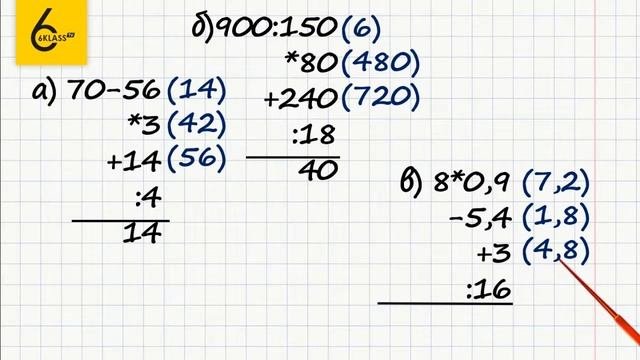 6KLASS TV
а) 70-56 (14)
*3 (42)
+14 (56)
:4
14
б) 900:150 (6)
*80 (480)
+240 (720)
:18
40
в) 8*0,9 (7,2)
-5,4 (1,8)
+3 (4,8)
:16